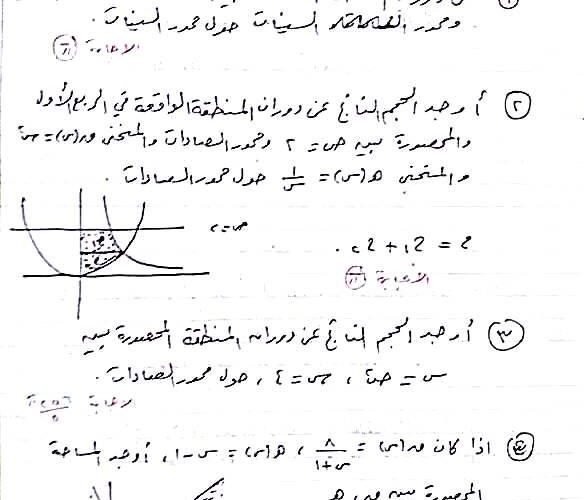 ومحور السينات حول محور السينات.
الاجابة π
② أوجد الحجم الناتج عن دوران المنطقة الواقعة في الربع الأول
والمحصورة بين ص = ٢ ومحور الصادات والمنحنى ق(س) = س²
والمنحنى ه(س) = ١/س حول محور الصادات.
ص = ٢
ح = ح١ + ح٢.
الاجابة π
③ أوجد الحجم الناتج عن دوران المنطقة المحصورة بين
س = ص²، س = ٤، حول محور الصادات.
الاجابة ٢٥٦π/٥
④ اذا كان ق(س) = ٨/س+١، ه(س) = س-١، أوجد المساحة
المحصورة بين ق، ه